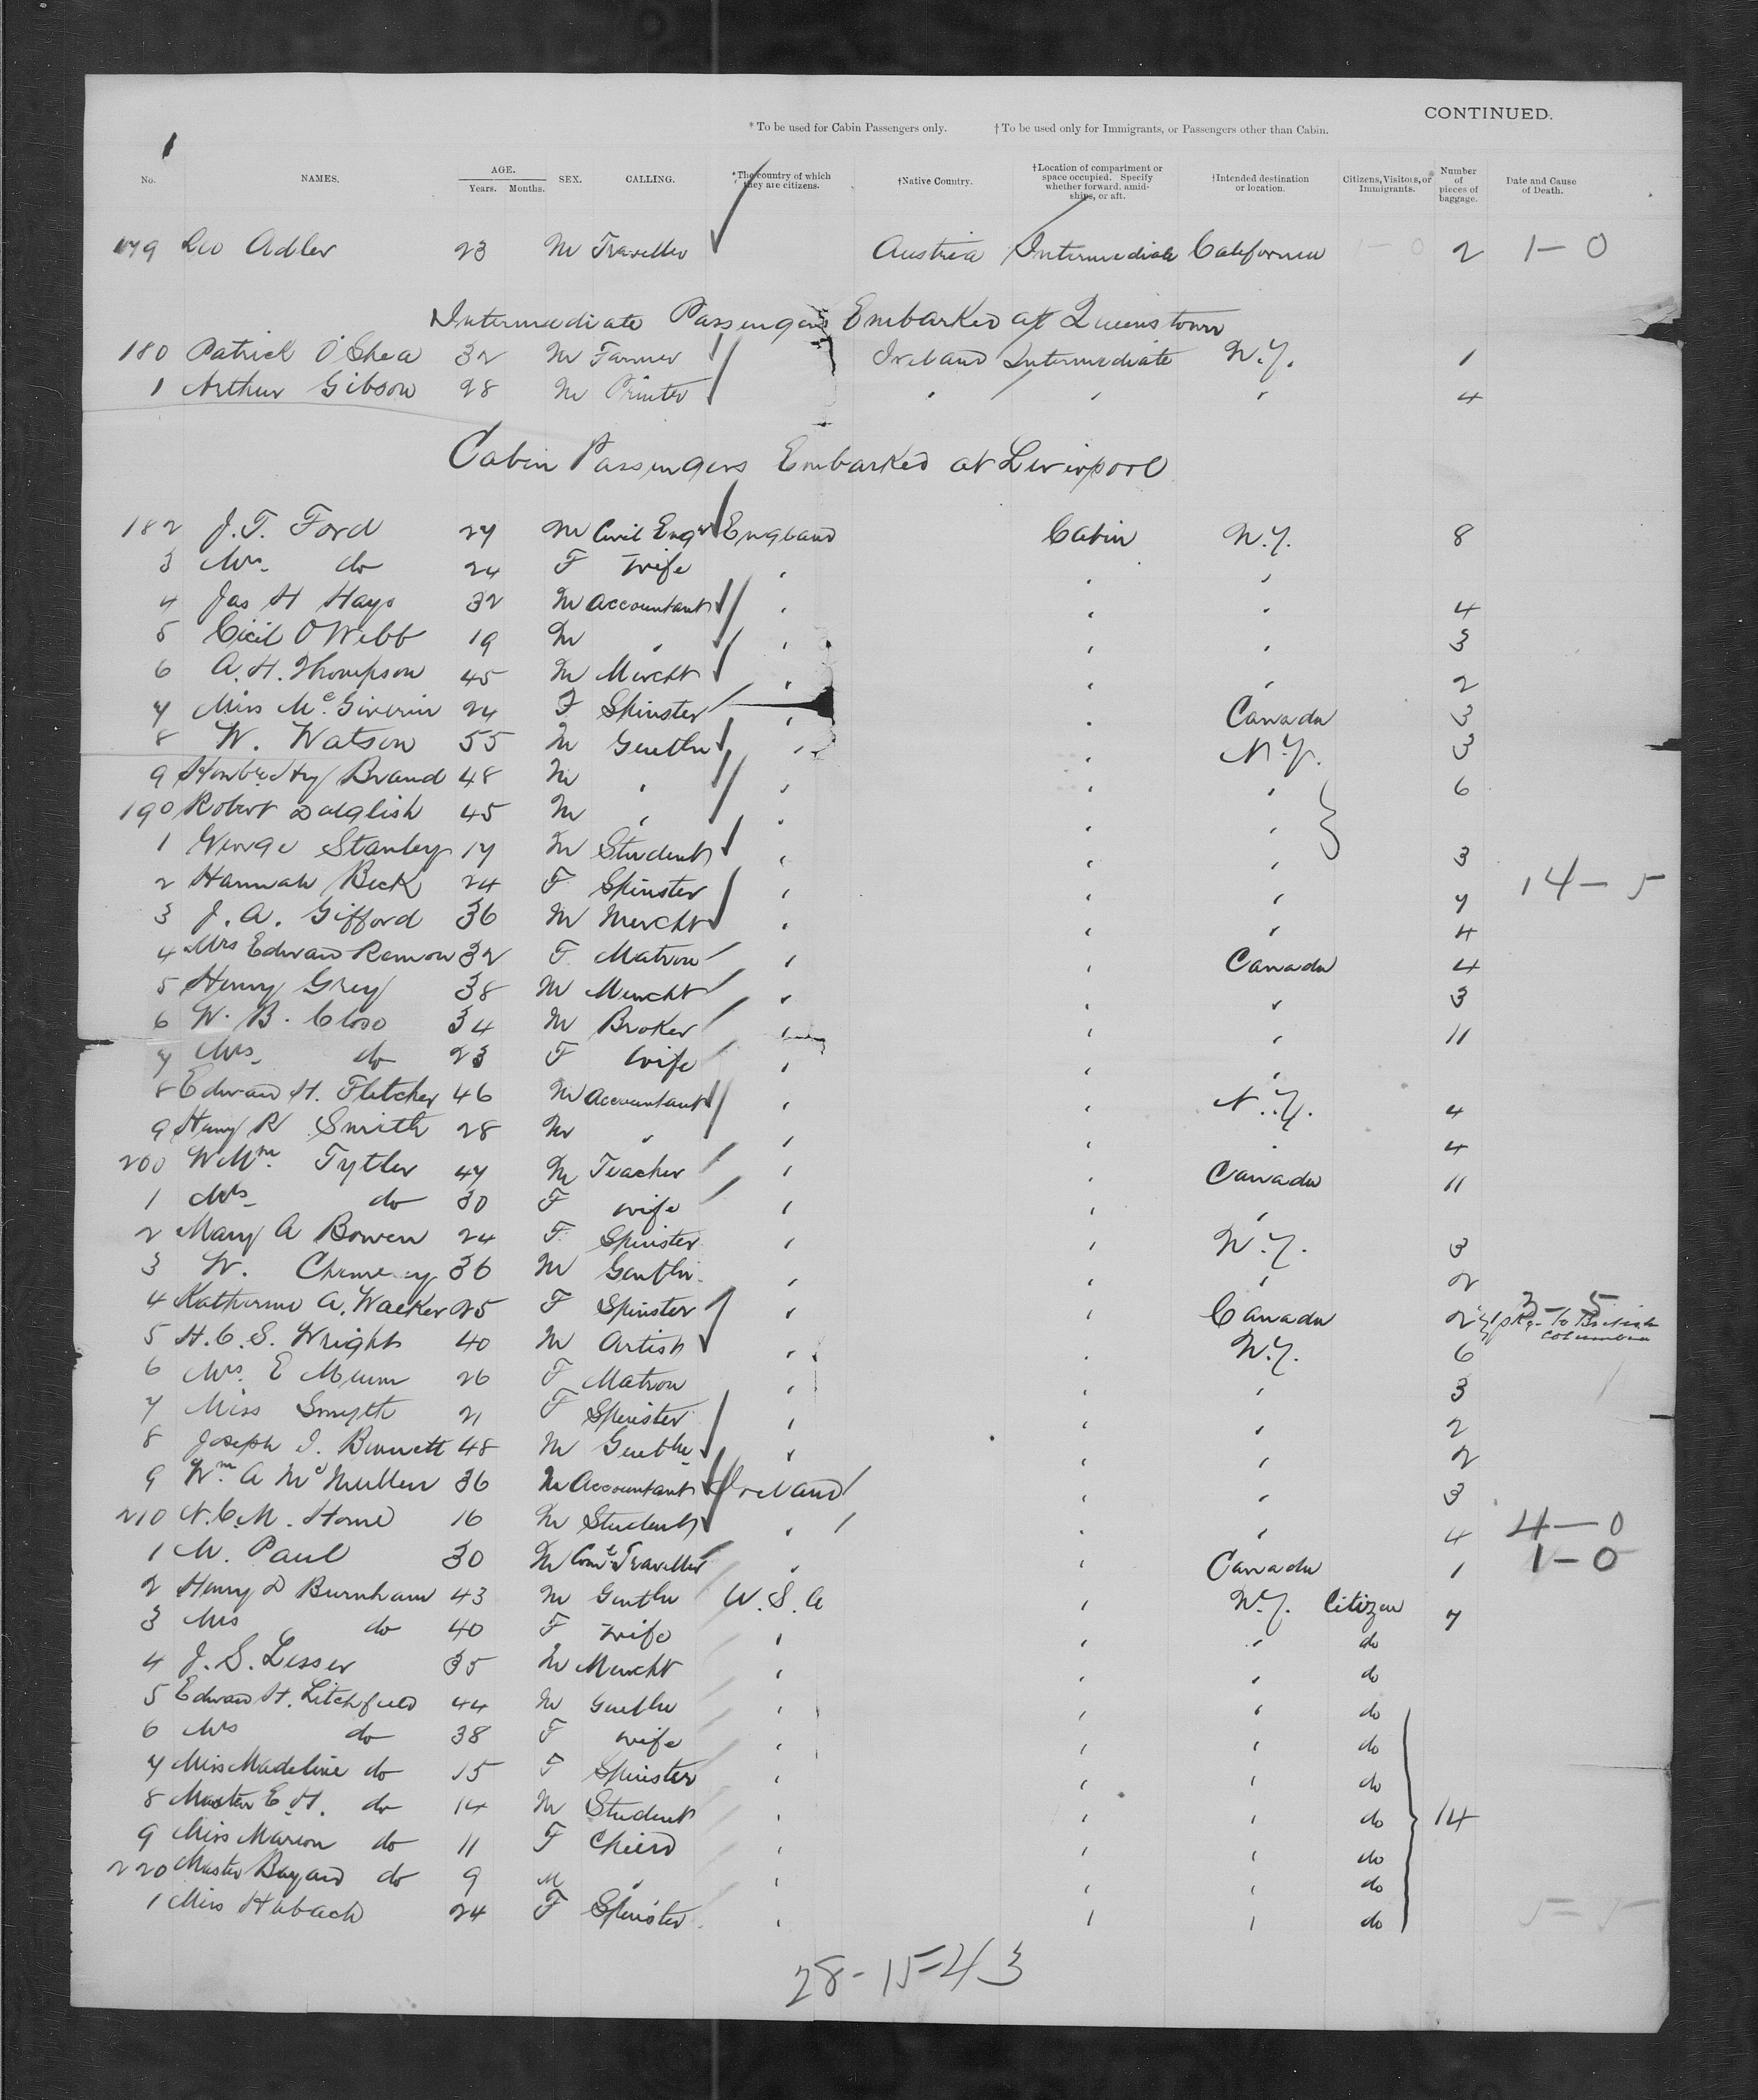 CONTINUED.
* To be used for Cabin Passengers only. † To be used only for Immigrants, or Passengers other than Cabin.
1
No. NAMES. AGE. Years. Months. SEX. CALLING. *The country of which they are citizens. †Native Country. †Location of compartment or space occupied. Specify whether forward, amidships, or aft. †Intended destination or location. Citizens, Visitors, or Immigrants. Number of pieces of baggage. Date and Cause of Death.
179 Leo Adler 23 M Traveller Austria Intermediate California 1-0 2 1-0
Intermediate Passengers Embarked at Queenstown
180 Patrick O'Shea 32 M Farmer Ireland Intermediate N.Y. 1
1 Arthur Gibson 28 M Printer " " " 4
Cabin Passengers Embarked at Liverpool
182 J.T. Ford 27 M Civil Engr England Cabin N.Y. 8
3 Mrs. do 24 F Wife " " "
4 Jas H Hays 32 M Accountant " " " 4
5 Cecil O Webb 19 M " " " " 3
6 A.H. Thompson 45 M Mercht " " " 2
7 Miss McGiverin 24 F Spinster " " Canada 3
8 W. Watson 55 M Gentln " " N.Y. 3
9 Honble Hy Brand 48 M " " " " 6
190 Robert Dalglish 45 M " " " "
1 George Stanley 17 M Student " " " 3
2 Hannah Beck 24 F Spinster " " " 7 14-5
3 J.A. Gifford 36 M Mercht " " " 4
4 Mrs Edward 32 F Matron " " Canada 4
5 Henry Grey 38 M Mercht " " " 3
6 W.B. Close 34 M Broker " " " 11
7 Mrs. do 23 F Wife " " "
8 Edward H. Fletcher 46 M Accountant " " N.Y. 4
9 Harry R Smith 28 M " " " " 4
200 Tytler 47 M Teacher " " Canada 11
1 Mrs. do 30 F Wife " " "
2 Mary A Bowen 24 F Spinster " " N.Y. 3
3 W. 36 M Gentln " " " 2
4 Katherine A. Walker 25 F Spinster " " Canada 2 3-5 To British Columbia
5 H.C.S. Wright 40 M Artist " " N.Y. 6
6 Mrs. E Mumm 26 F Matron " " " 3
7 Miss Smyth 21 F Spinster " " " 2
8 Joseph I. Bennett 48 M Gentln " " " 2
9 Wm A McMullen 36 M Accountant Ireland " " 3
210 N.C.M. Horne 16 M Student " " " 4 4-0
1 M. Paul 30 M Coml Traveller " " Canada 1 1-0
2 Henry D Burnham 43 M Gentln U.S.A " N.Y. Citizen 7
3 Mrs do 40 F Wife " " " do
4 J.S. Lesser 35 M Mercht " " " do
5 Edward H. Litchfield 44 M Gentln " " " do
6 Mrs do 38 F Wife " " " do
7 Miss Madeline do 15 F Spinster " " " do
8 Master E.H. do 14 M Student " " " do 14
9 Miss Marion do 11 F Child " " " do
220 Master Bayard do 9 M " " " " do
1 Miss Habach 24 F Spinster " " " do 5-5
28-15=43